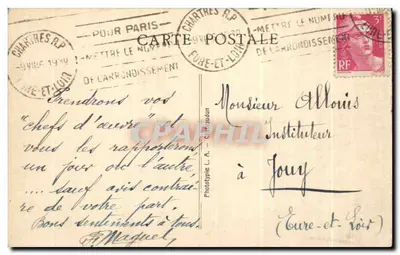 POUR PARIS
METTRE LE NUMERO
DE L'ARRONDISSEMENT
CHARTRES R.P.
EURE-ET-LOIR
CHARTRES R.P.
EURE-ET-LOIR
METTRE LE NUMERO
DE L'ARRONDISSEMENT
CARTE POSTALE
RF
Prendrons vos
"chefs d'œuvre" et
vous les rapporterons
un jour ou l'autre
.... sauf avis contrai
re de votre part.
Bons sentiments à tous.
Phototypie L. A.
Monsieur Allouis
Instituteur
à Jouy
(Eure-et-Loir)
CPARAMA.COM